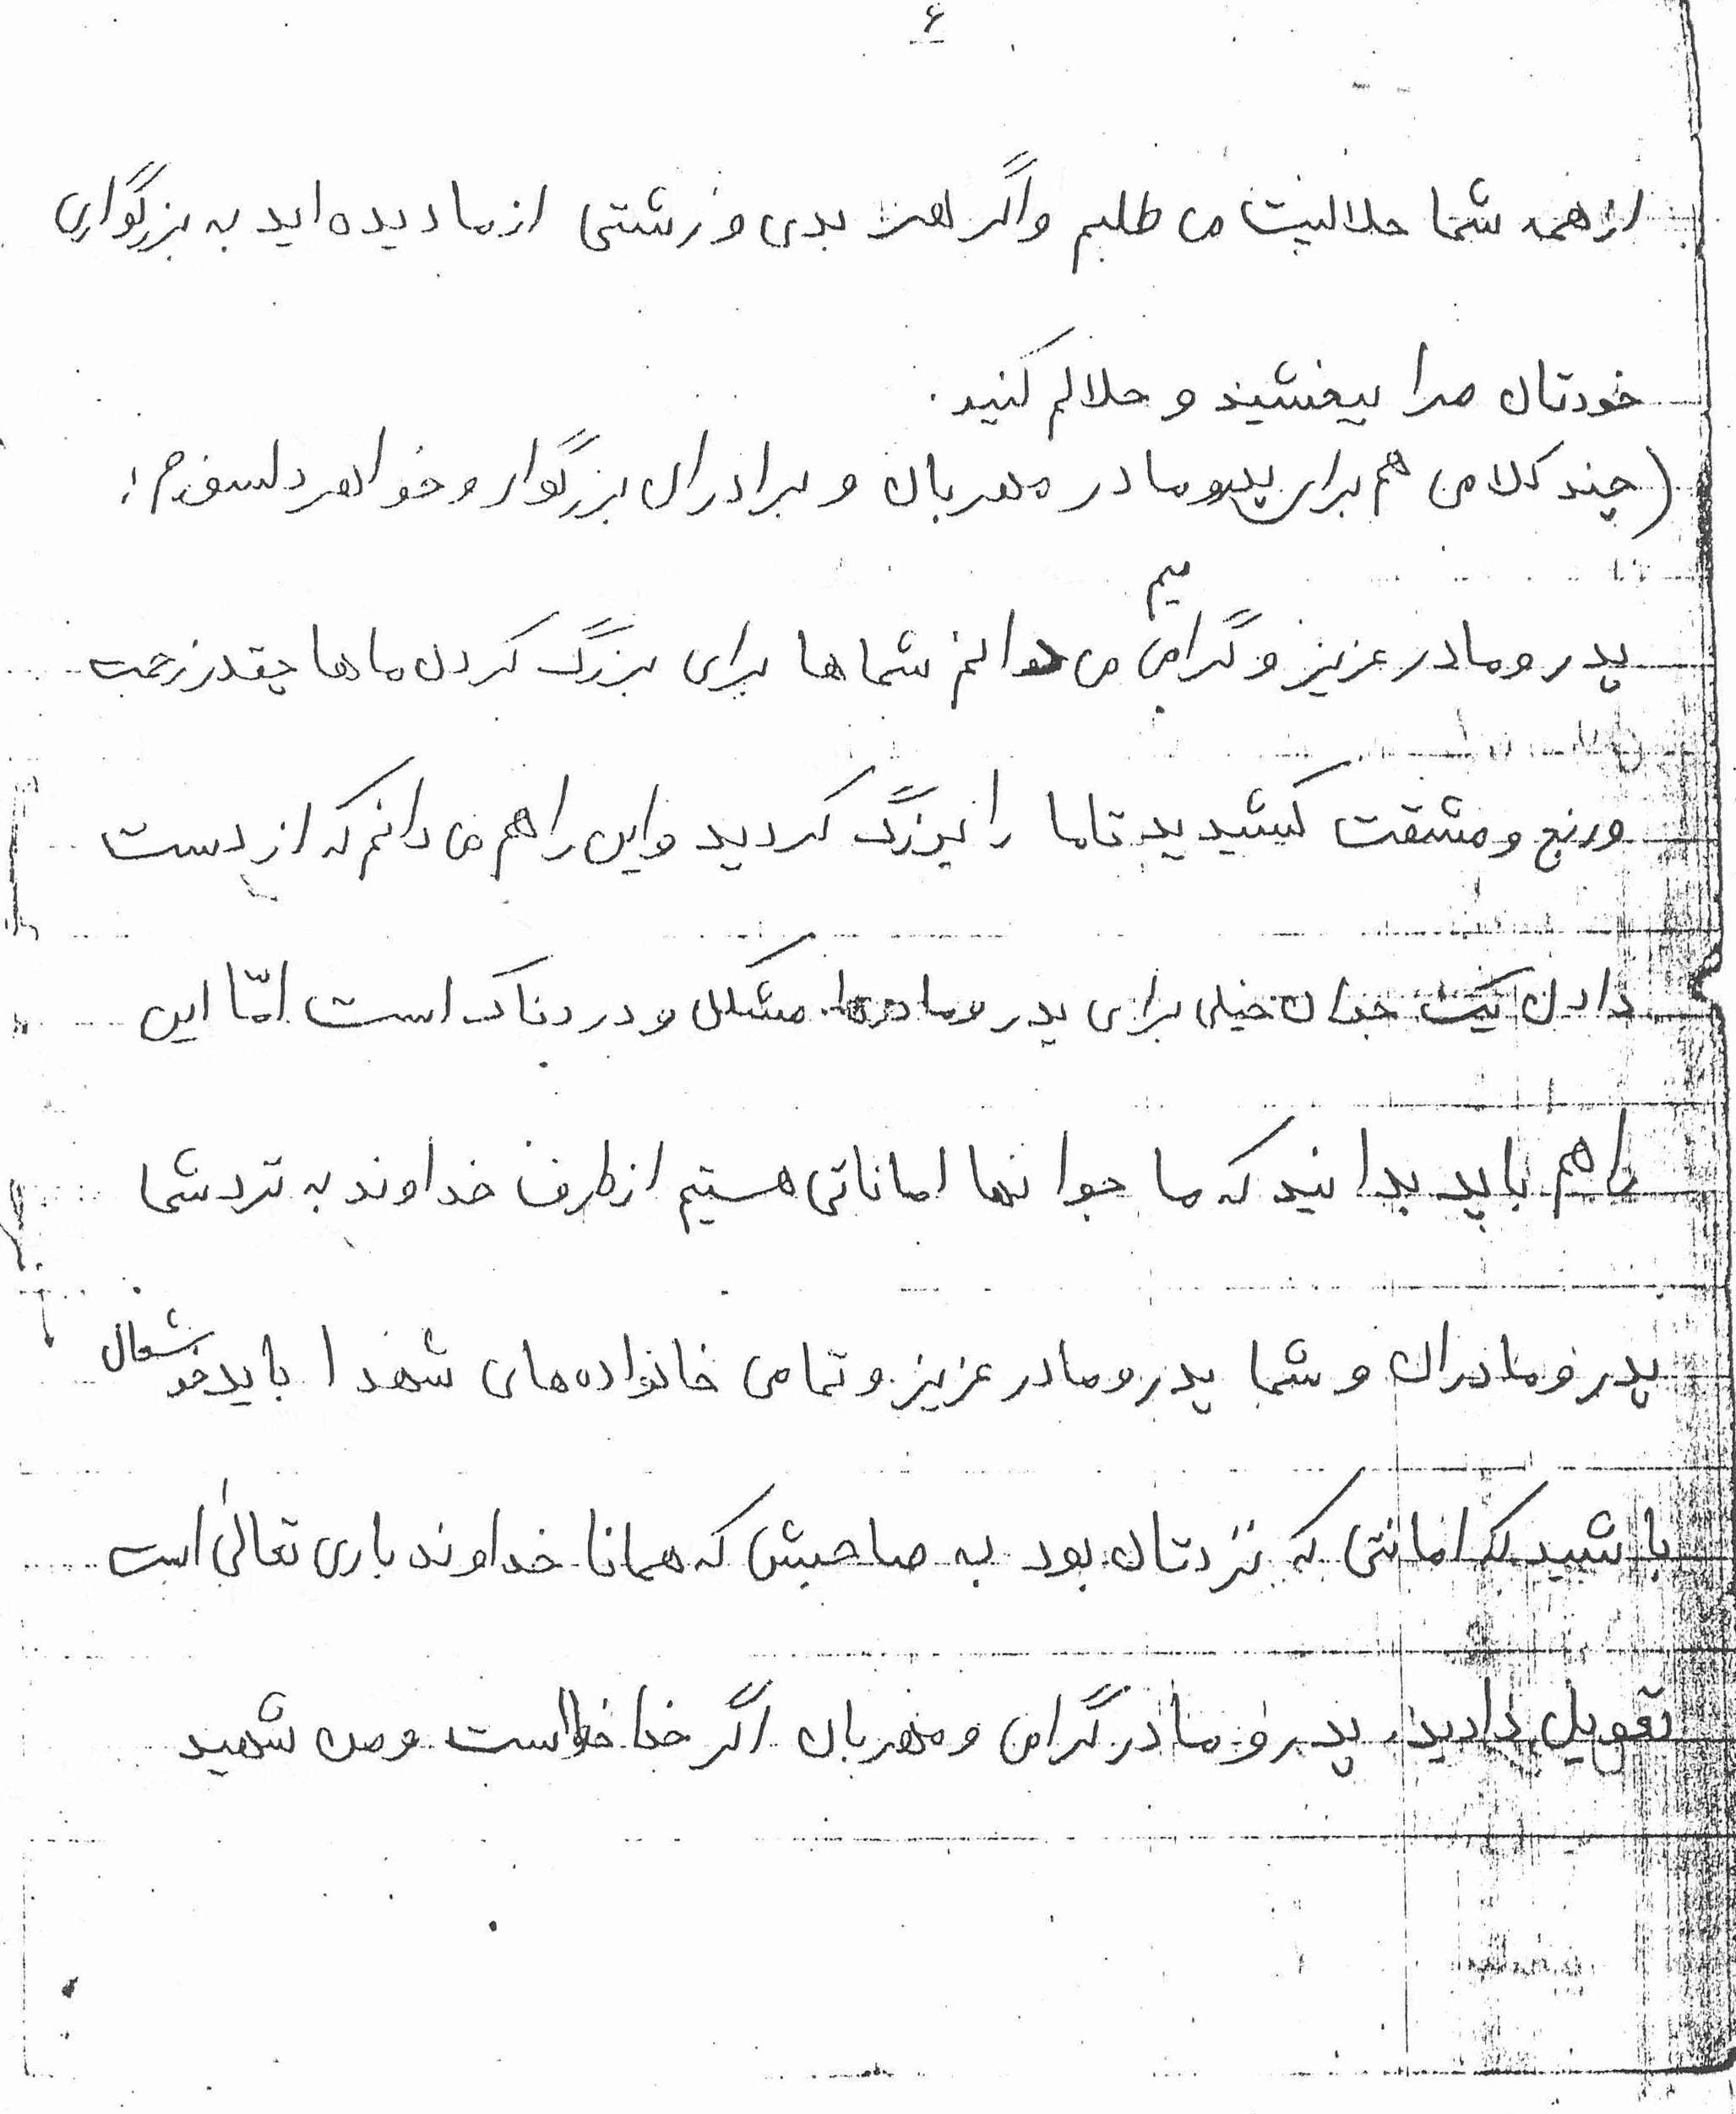 ۶
از همه شما حلالیت می طلبم و اگر هر بدی و زشتی از ما دیده اید به بزرگواری
خودتان مرا ببخشید و حلالم کنید.
(چند کلامی هم برای پدر و مادر مهربان و برادران بزرگوار و خواهر دلسوزم:
پدر و مادر عزیز و گرامیم می دانم شماها برای بزرگ کردن ماها چقدر زحمت
و رنج و مشقت کشیدید تا ما را بزرگ کردید و این را هم می دانم که از دست
دادن یک جوان خیلی برای پدر و مادرها مشکل و دردناک است امّا این
را هم باید بدانید که ما جوانها اماناتی هستیم از طرف خداوند به نزد شما
پدر و مادران و شما پدر و مادر عزیز و تمامی خانواده های شهدا باید خوشحال
باشید که امانتی که نزدتان بود به صاحبش که همانا خداوند باری تعالیٰ است
تحویل دادید، پدر و مادر گرامی و مهربان اگر خدا خواست و من شهید